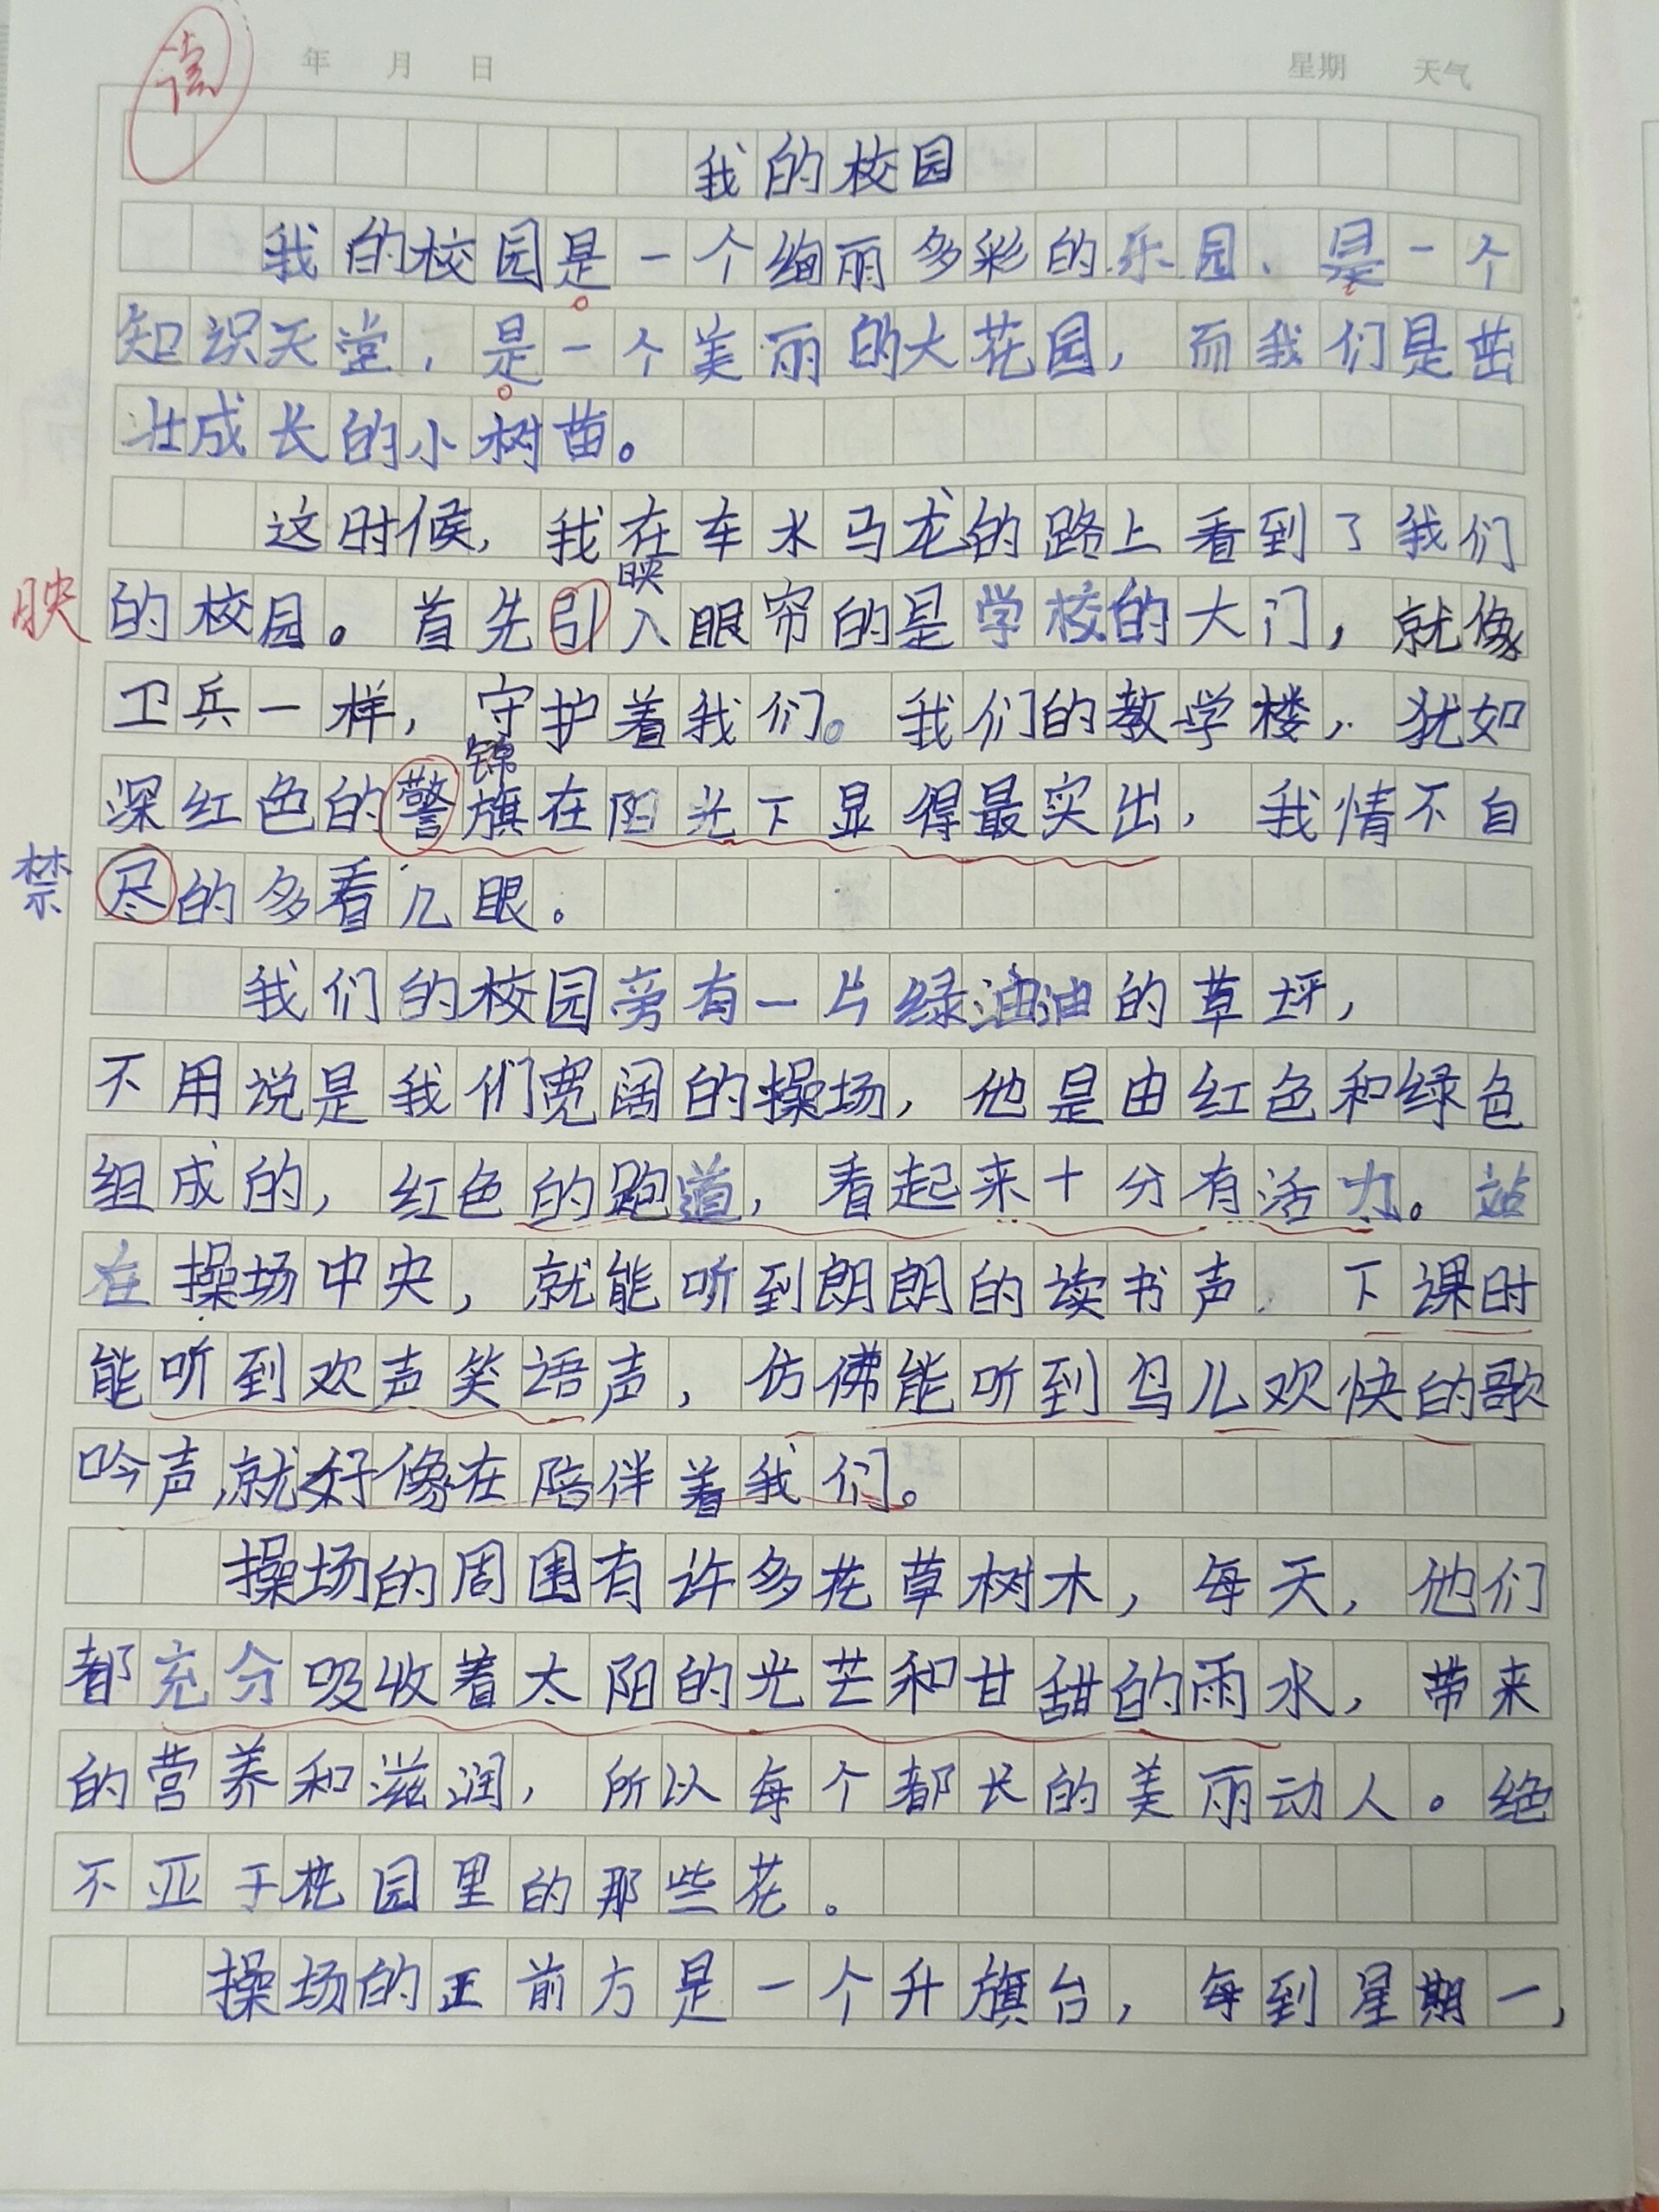 读
年 月 日 星期 天气
我的校园
我的校园是一个绚丽多彩的乐园、是一个
知识天堂，是一个美丽的大花园，而我们是茁
壮成长的小树苗。
这时候，我在车水马龙的路上看到了我们
映
映 的校园。首先引入眼帘的是学校的大门，就像
卫兵一样，守护着我们。我们的教学楼，犹如
锦
深红色的警旗在阳光下显得最突出，我情不自
禁 尽的多看几眼。
我们的校园旁有一片绿油油的草坪，
不用说是我们宽阔的操场，他是由红色和绿色
组成的，红色的跑道，看起来十分有活力。站
在操场中央，就能听到朗朗的读书声，下课时
能听到欢声笑语声，仿佛能听到鸟儿欢快的歌
吟声，就好像在陪伴着我们。
操场的周围有许多花草树木，每天，他们
都充分吸收着太阳的光芒和甘甜的雨水，带来
的营养和滋润，所以每个都长的美丽动人。绝
不亚于花园里的那些花。
操场的正前方是一个升旗台，每到星期一，